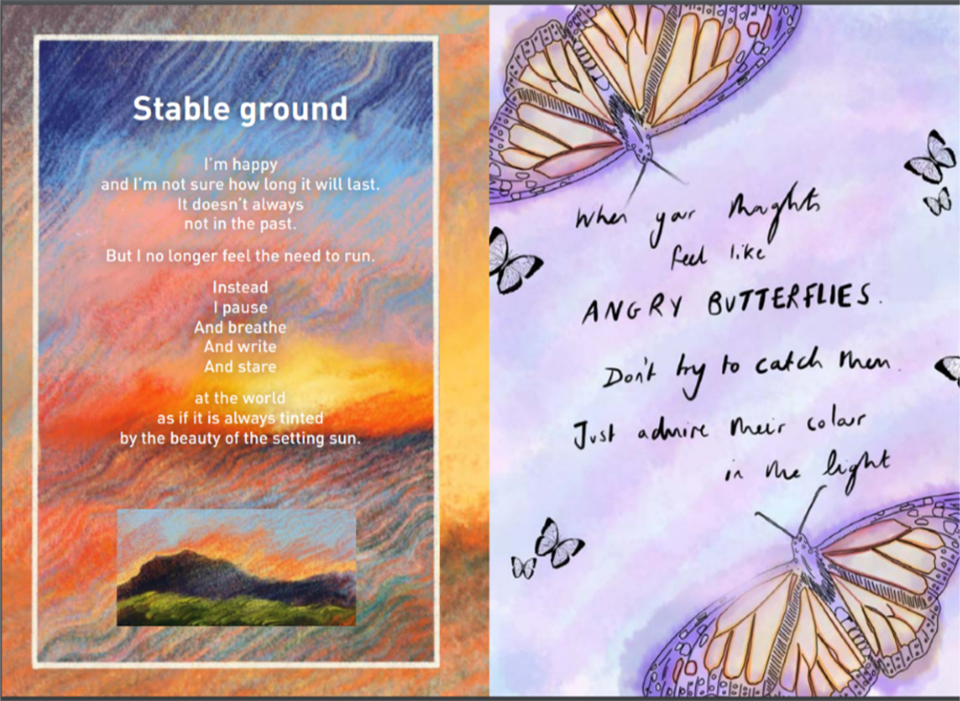 Stable ground
I'm happy
and I'm not sure how long it will last.
It doesn't always
not in the past.
But I no longer feel the need to run.
Instead
I pause
And breathe
And write
And stare
at the world
as if it is always tinted
by the beauty of the setting sun.
When your thoughts
feel like
ANGRY BUTTERFLIES.
Don't try to catch them.
Just admire their colour
in the light